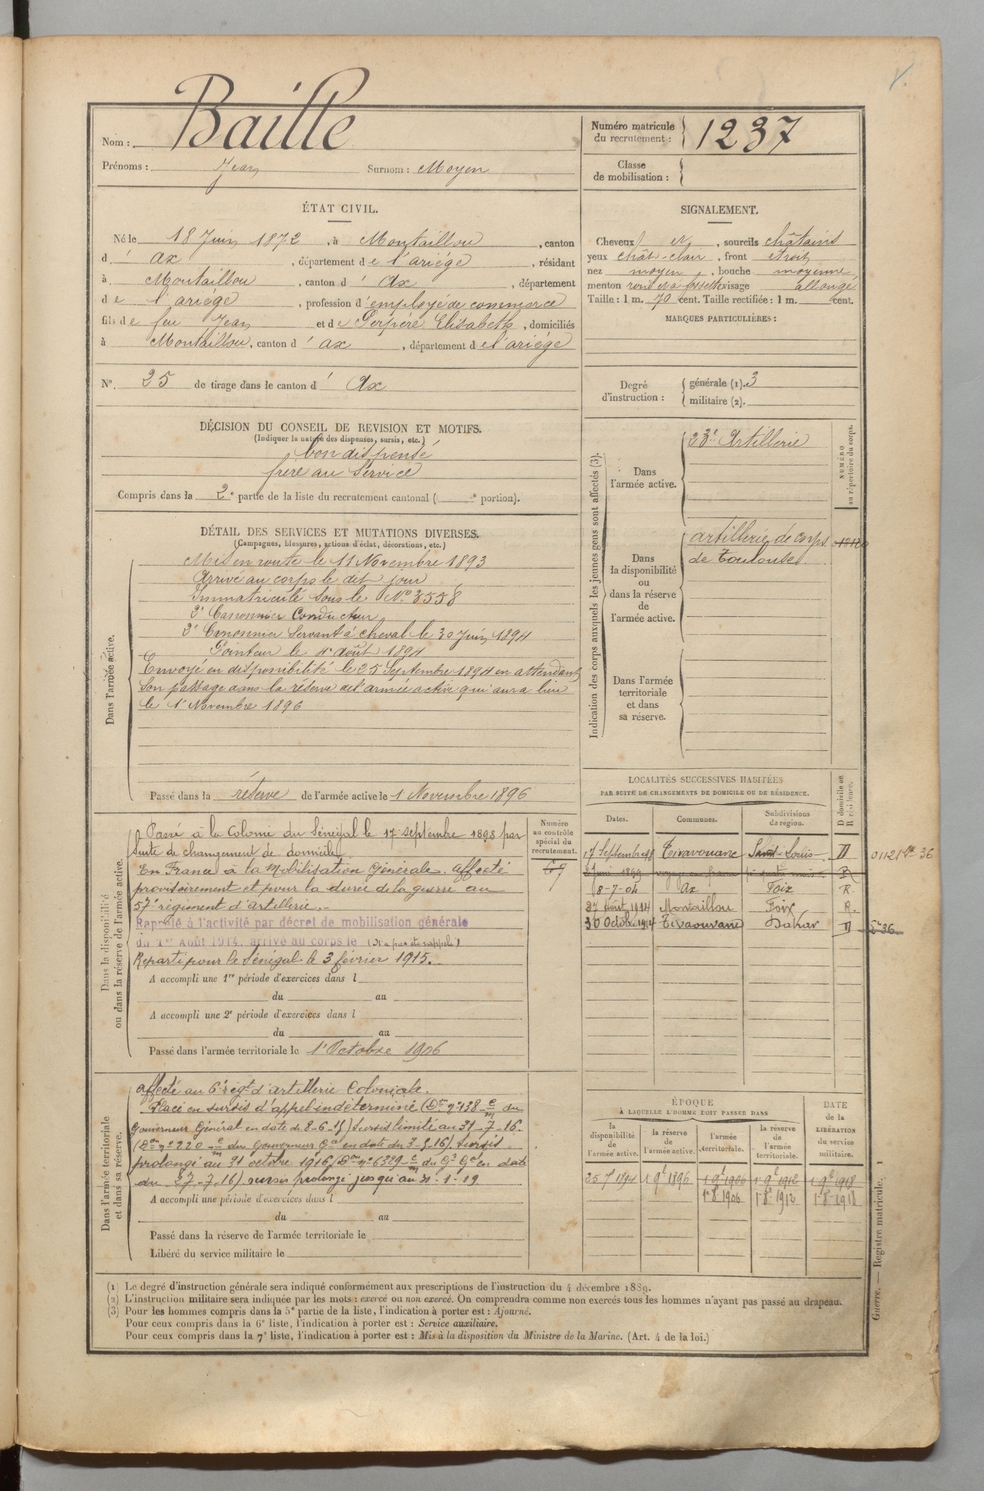 Nom : Baille
Prénoms : Jean Surnom : Moyen
Numéro matricule du recrutement : 1237
Classe de mobilisation :
ÉTAT CIVIL.
Né le 18 Juin 1872, à Montaillou, canton
d' Ax, département de l'ariége, résidant
à Montaillou, canton d' Ax, département
de l'ariége, profession d'employé de commerce
fils de feu Jean et de Serpère Elisabeth, domiciliés
à Montaillou, canton d' ax, département de l'ariége
N° 25 de tirage dans le canton d' Ax
SIGNALEMENT.
Cheveux N, sourcils châtains
yeux chât-clair, front étroit
nez moyen, bouche moyenne,
menton rond et à fossette visage allongé
Taille : 1 m. 70 cent. Taille rectifiée : 1 m. cent.
MARQUES PARTICULIÈRES :
Degré d'instruction : générale (1). 3
militaire (2).
DÉCISION DU CONSEIL DE REVISION ET MOTIFS.
(Indiquer la nature des dispenses, sursis, etc.)
bon dispensé
frère au Service
Compris dans la 2e partie de la liste du recrutement cantonal ( e portion).
DÉTAIL DES SERVICES ET MUTATIONS DIVERSES.
(Campagnes, blessures, actions d'éclat, décorations, etc.)
Dans l'armée active.
Mis en route le 11 Novembre 1893
Arrivé au corps le dit jour
Immatriculé sous le N° 3558
2e Canonnier Conducteur
2e Canonnier Servant à cheval le 30 Juin 1894
Pointeur le 4 août 1894
Envoyé en disponibilité le 25 Septembre 1894 en attendant
Son passage dans la réserve de l'armée active qui aura lieu
le 1er Novembre 1896
Passé dans la réserve de l'armée active le 1 Novembre 1896
Indication des corps auxquels les jeunes gens sont affectés (3).
Dans l'armée active.
23e Artillerie
NUMÉRO au répertoire du corps.
Dans la disponibilité ou dans la réserve de l'armée active.
artillerie de corps
de Toulouse
Dans l'armée territoriale et dans sa réserve.
LOCALITÉS SUCCESSIVES HABITÉES
PAR SUITE DE CHANGEMENTS DE DOMICILE OU DE RÉSIDENCE.
Dates. Communes. Subdivisions de région. D domicile ou R résidence.
17 Septembre 98 Tivavouane Saint-Louis D
8-7-04 Ax Foix R.
27 août 1914 Montaillou Foix R.
30 Octobre 1914 Tivaouvane Dakar D
Dans la disponibilité ou dans la réserve de l'armée active.
Passé à la Colonie du Sénégal le 17 septembre 1898 par
suite de changement de domicile
En France à la Mobilisation Générale. Affecté
provisoirement et pour la durée de la guerre au
57e régiment d'artillerie.
Rappelé à l'activité par décret de mobilisation générale
du 1er Août 1914, arrivé au corps le (N'a pas été rappelé)
Reparti pour le Sénégal le 3 février 1915.
A accompli une 1re période d'exercices dans l
du au
A accompli une 2e période d'exercices dans l
du au
Passé dans l'armée territoriale le 1er Octobre 1906
Numéro au contrôle spécial du recrutement.
Dans l'armée territoriale et dans sa réserve.
affecté au 6e régt d'artillerie Coloniale.
Placé en sursis d'appel indéterminé (Don n° 138 du
Gouverneur Général en date du 8-6-15) Sursis limité au 31-7-16.
(Don n° 220 du Gouverneur Gal en date du 3-5-16) sursis
prolongé au 31 octobre 1916 (Don n° 6329 du Gr Gal en date
du 27-7-16) sursis prolongé jusqu'au 31-1-19
A accompli une période d'exercices dans l
du au
Passé dans la réserve de l'armée territoriale le
Libéré du service militaire le
ÉPOQUE
À LAQUELLE L'HOMME DOIT PASSER DANS
la disponibilité de l'armée active. la réserve de l'armée active. l'armée territoriale. la réserve de l'armée territoriale.
DATE de la LIBÉRATION du service militaire.
25 7 1894 1 9e 1896 1 9e 1906 1 9e 1912 1 9e 1918
1-8-1906 1-8-1912 1-8-1918
Guerre. — Registre matricule. 1
(1) Le degré d'instruction générale sera indiqué conformément aux prescriptions de l'instruction du 4 décembre 1889.
(2) L'instruction militaire sera indiquée par les mots : exercé ou non exercé. On comprendra comme non exercés tous les hommes n'ayant pas passé au drapeau.
(3) Pour les hommes compris dans la 5e partie de la liste, l'indication à porter est : Ajourné.
Pour ceux compris dans la 6e liste, l'indication à porter est : Service auxiliaire.
Pour ceux compris dans la 7e liste, l'indication à porter est : Mis à la disposition du Ministre de la Marine. (Art. 4 de la loi.)